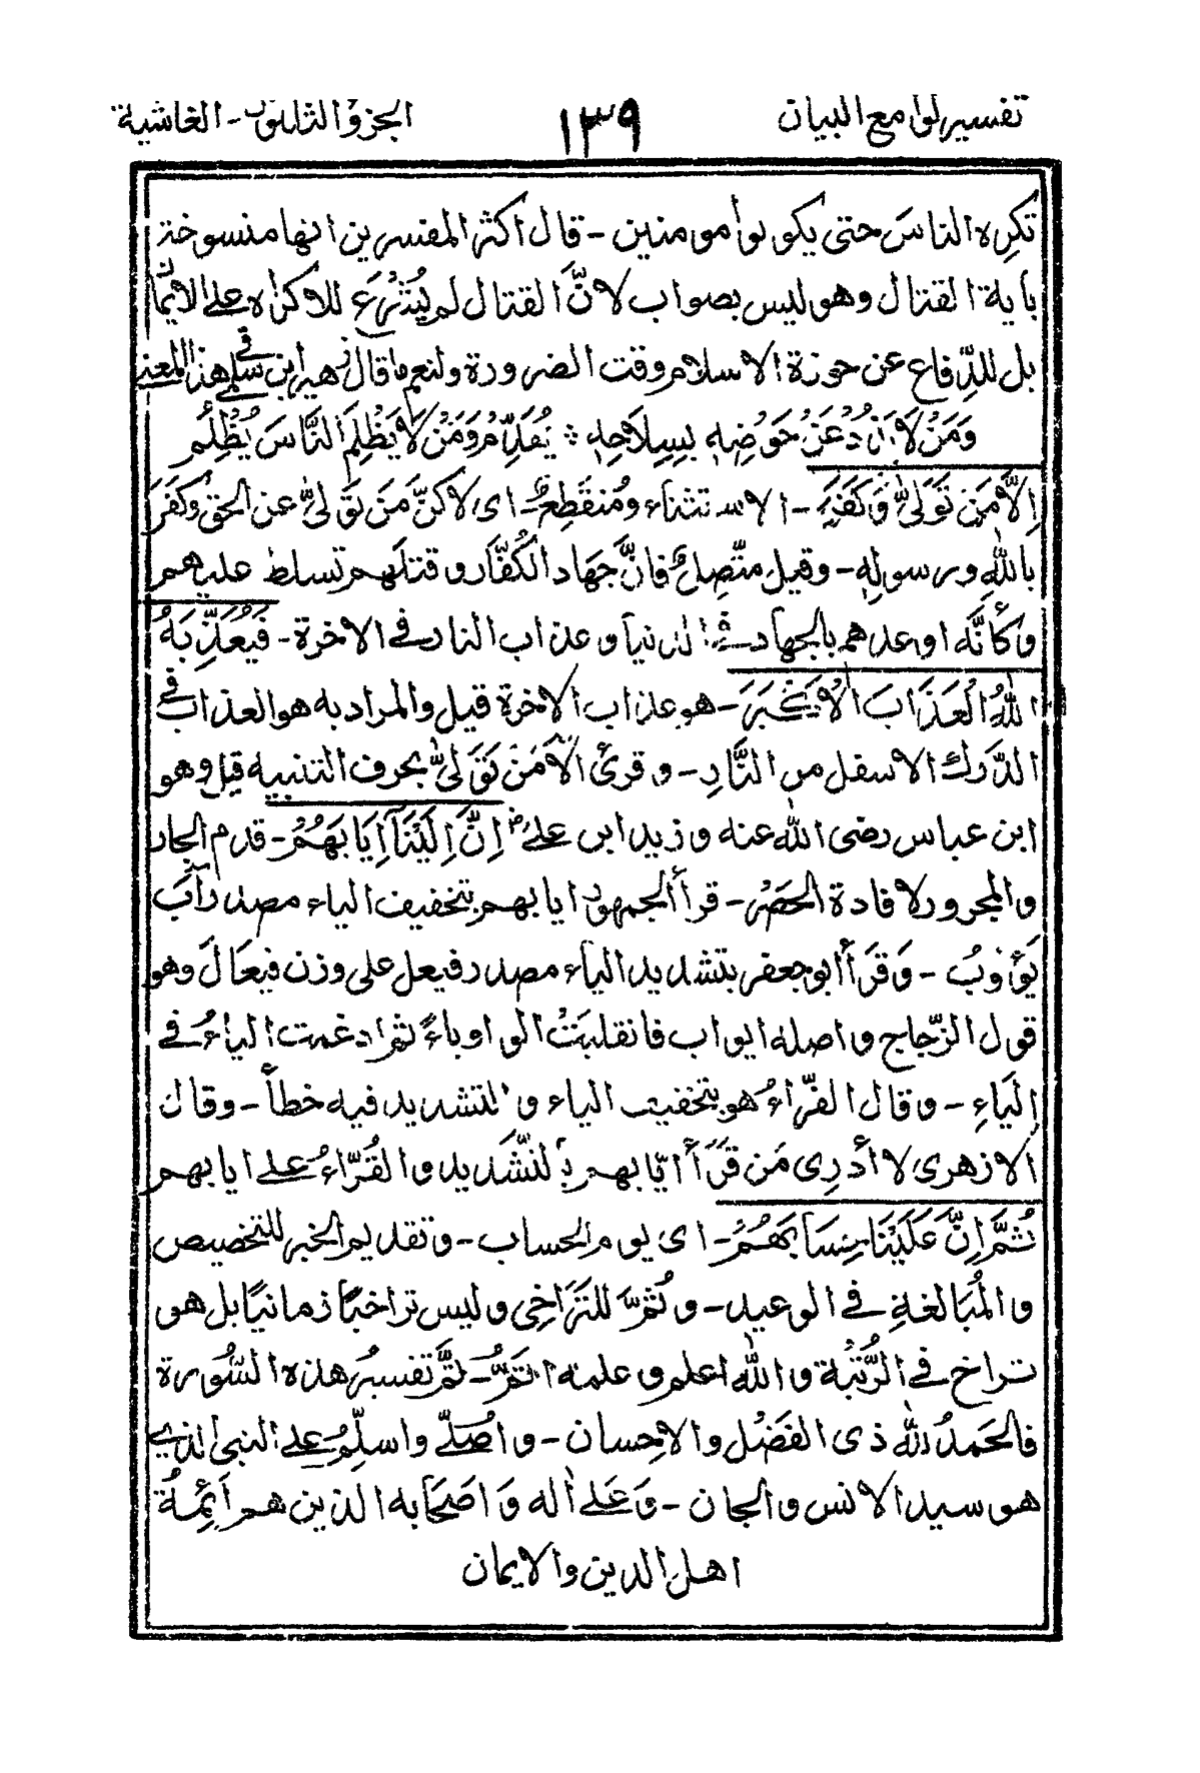 تفسير لوامع البيان ١٣٩ الجزء الثلثون - الغاشية
تكره الناس حتى يكونوا مومنين - قال أكثر المفسرين انها منسوخة
بأية القتال وهو ليس بصواب لانّ القتال لم يُشْرَع للاكراه على الايمان
بل للدِّفاع عن حوزة الاسلام وقت الضرورة ولنعم ما قال زهير ابن سلمى في هذا المعنى
وَمَنْ لَا يَذُدْ عَنْ حَوْضِهٖ بِسِلَاحِهٖ ۞ يُهَدَّمْ وَمَنْ لَا يَظْلِمِ النَّاسَ يُظْلَمِ
اِلَّا مَنْ تَوَلّٰى وَكَفَرَ - الاستثناء ومُنقَطِعٌ - اى لاكنَّ مَنْ تَوَلّٰى عن الحق وَكَفَرَ
باللهِ ورسولهٖ - وقيل متّصِلٌ فانَّ جهاد الكُفَّار وقتلَهم تسلط عليهم
وكأنَّه اوعدهم بالجهاد فى الدنيا وعذاب النار في الاخرة - فَيُعَذِّبُهُ
اللهُ الْعَذَابَ الْاَكْبَرَ - هو عذاب الاخرة قيل والمراد به هو العذاب في
الدَّرك الاسفل من النَّارِ - وقرئ أَلَا مَنْ تَوَلّٰى بحرف التنبيه قيل وهو
ابن عباس رضى الله عنه وزيد ابن علىؓ اِنَّ اِلَيْنَآ اِيَابَهُمْ - قدم الجار
والمجرور لافادة الحَصْرِ - قرأ الجمهور ايابهم بتخفيف الياء مصدر آبَ
يَؤُوبُ - وَقَرَأ أبو جعفر بتشديد الياء مصدر فيعل على وزن فيعَالَ وهو
قول الزّجاج واصله ايواب فانقلبَتْ الواو ياءً ثم ادغمت الياءُ في
الْيَاءِ - وقال الفّراءُ هو بتخفيف الياء والتشديد فيه خطأ - وقال
الازهرى لا أَدْرِى مَن قَرَأَ ايّابهم بِالتَّشْدِيد والقُرّاءُ على ايابهم
ثُمَّ اِنَّ عَلَيْنَا حِسَابَهُمْ - اى يوم الحساب - وتقديم الخبر للتخصيص
والمُبَالغةِ في الوعيد - وثُمَّ للتَرَاخِى وليس تراخيًا زمانيًا بل هو
تراخ في الرُّتْبة والله اعلم وعلمه اتمُّ - تمَّ تفسيرُ هذه السُّورة
فالحَمدُ لله ذى الفَضْل والاحسان - واُصَلّے واسلِّمُ على النبى الذى
هو سيد الانس والجان - وَعَلىٰ اٰله وَاصحَابه الذين هم اَئِمةُ
اهلِ الدين والايمان